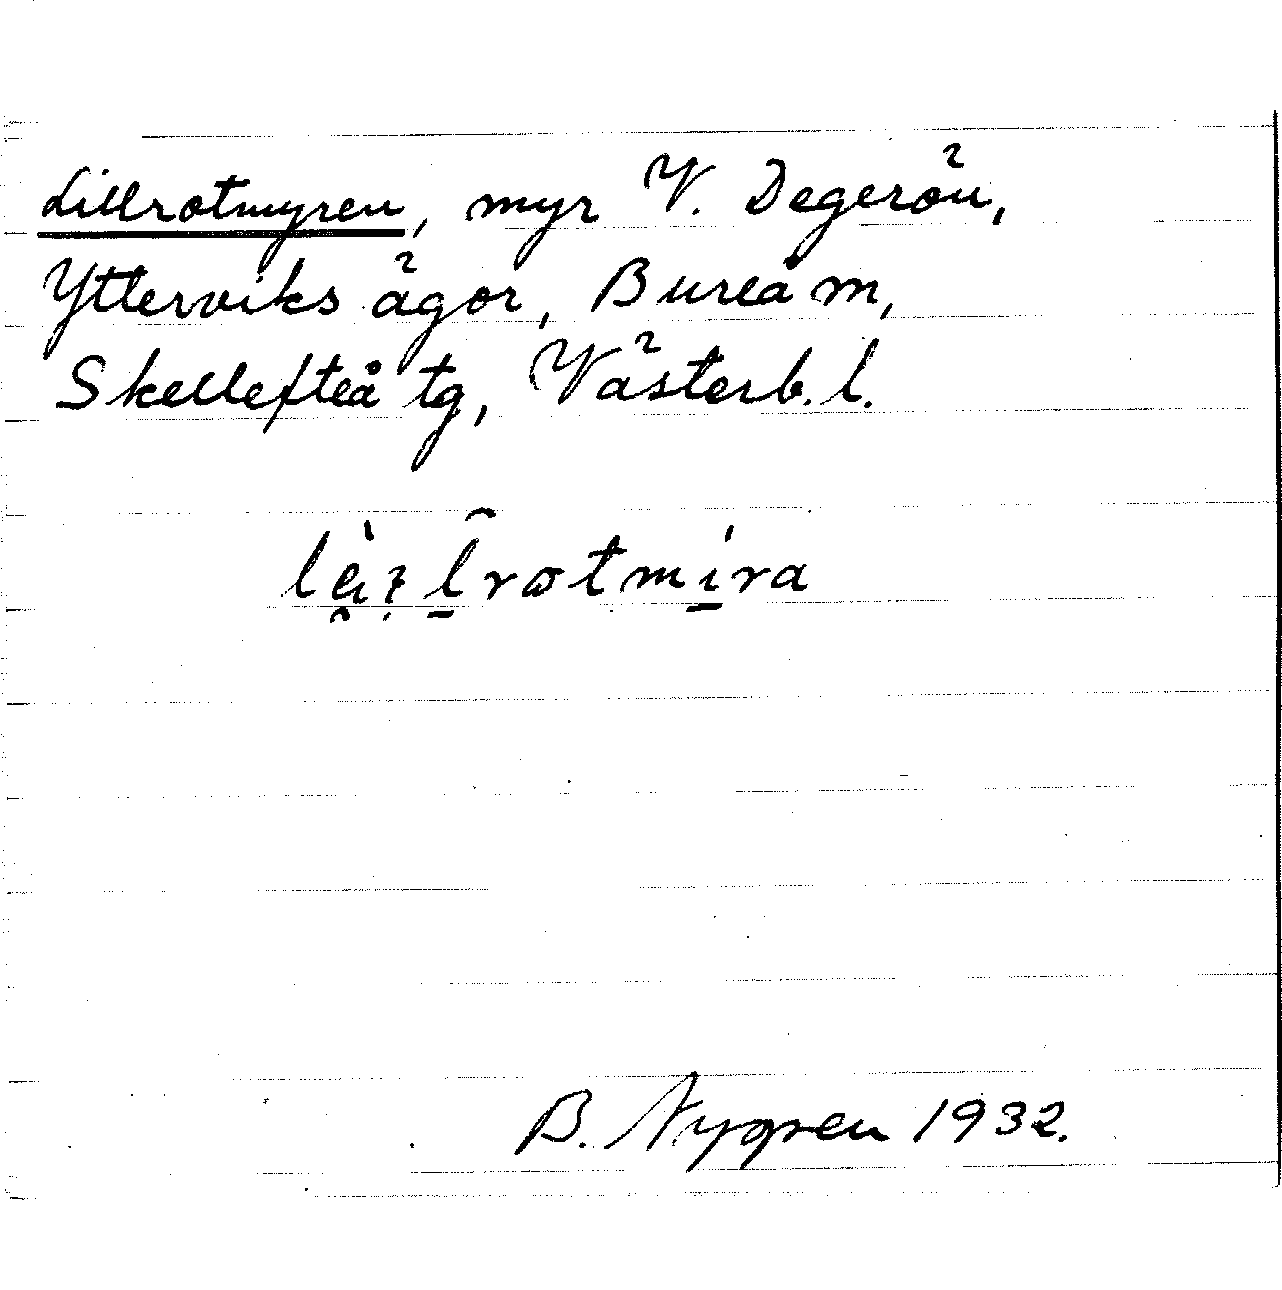 Lillrotmyren, myr V. Degerön,
Ytterviks ägor, Bureå m,
Skellefteå tg, Västerb. l.
B. Nygren 1932.